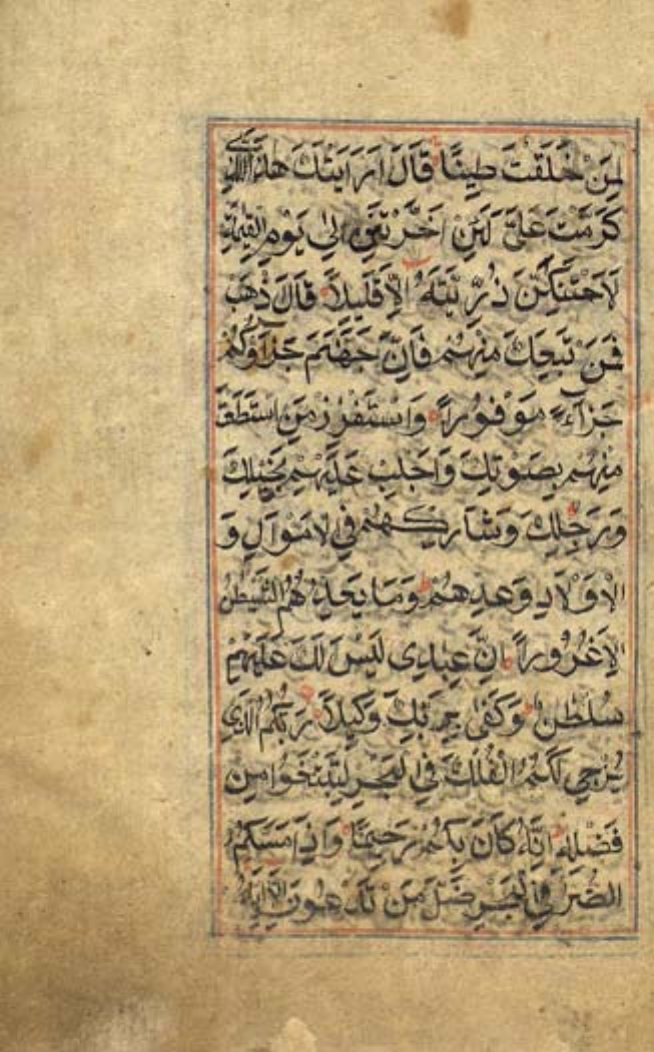 لِمَنْ خَلَقْتَ طِينًا قَالَ اَرَاَيْتَكَ هٰذَا الَّذِي
كَرَّمْتَ عَلَيَّ لَئِنْ اَخَّرْتَنِ اِلٰى يَوْمِ الْقِيٰمَةِ
لَاَحْتَنِكَنَّ ذُرِّيَّتَهُ اِلَّا قَلِيلًا قَالَ ذْهَبْ
فَمَنْ تَبِعَكَ مِنْهُمْ فَاِنَّ جَهَنَّمَ جَزَآؤُكُمْ
جَزَآءً مَوْفُورًا وَاسْتَفْزِزْ مَنِ اسْتَطَعْتَ
مِنْهُمْ بِصَوْتِكَ وَاَجْلِبْ عَلَيْهِمْ بِخَيْلِكَ
وَرَجِلِكَ وَشَارِكْهُمْ فِي الْاَمْوَالِ وَ
الْاَوْلَادِ وَعِدْهُمْ وَمَا يَعِدُهُمُ الشَّيْطٰنُ
اِلَّا غُرُورًا اِنَّ عِبَادِي لَيْسَ لَكَ عَلَيْهِمْ
سُلْطٰنٌ وَكَفٰى بِرَبِّكَ وَكِيلًا رَبُّكُمُ الَّذِي
يُزْجِي لَكُمُ الْفُلْكَ فِي الْبَحْرِ لِتَبْتَغُوا مِنْ
فَضْلِهِ اِنَّهُ كَانَ بِكُمْ رَحِيمًا وَاِذَا مَسَّكُمُ
الضُّرُّ فِي الْبَحْرِ ضَلَّ مَنْ تَدْعُونَ اِلَّا اِيَّاهُ